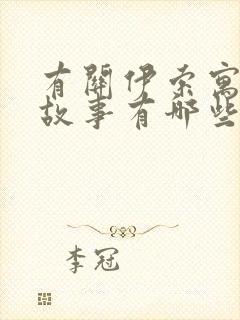 有關伊索寓
故事有哪些
李冠